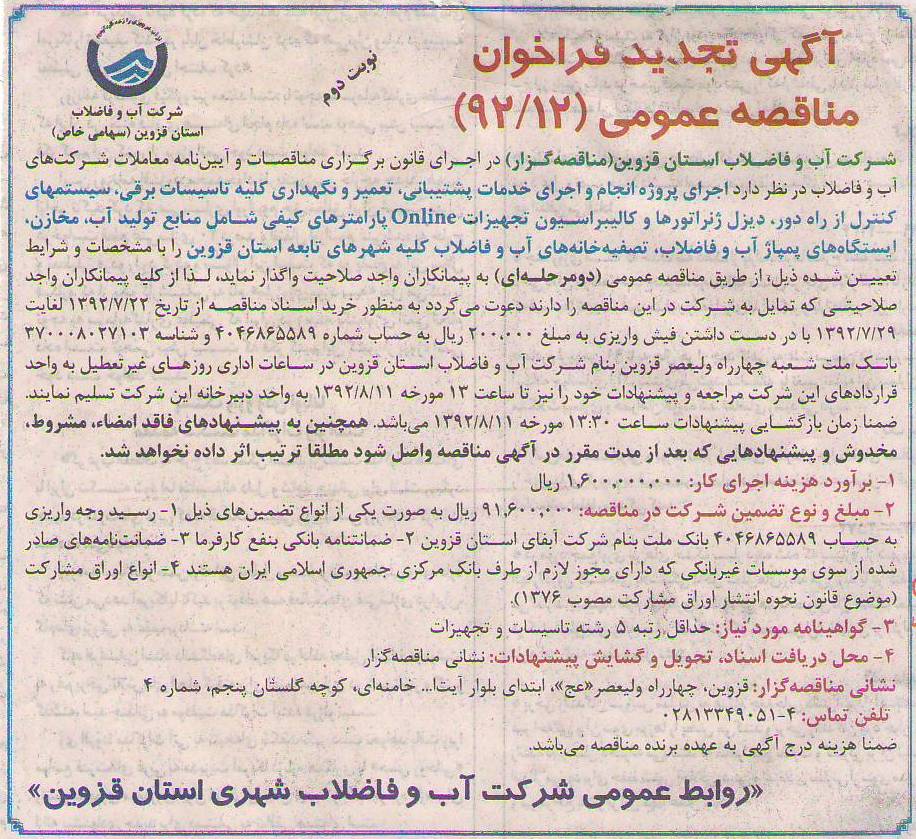 آگهی تجدید فراخوان
مناقصه عمومی (۹۲/۱۲)
نوبت دوم
شرکت آب و فاضلاب
استان قزوین (سهامی خاص)
شرکت آب و فاضلاب استان قزوین(مناقصه‌گزار) در اجرای قانون برگزاری مناقصات و آیین‌نامه معاملات شرکت‌های
آب و فاضلاب در نظر دارد اجرای پروژه انجام و اجرای خدمات پشتیبانی، تعمیر و نگهداری کلیه تاسیسات برقی، سیستمهای
کنترل از راه دور، دیزل ژنراتورها و کالیبراسیون تجهیزات Online پارامترهای کیفی شامل منابع تولید آب، مخازن،
ایستگاه‌های پمپاژ آب و فاضلاب، تصفیه‌خانه‌های آب و فاضلاب کلیه شهرهای تابعه استان قزوین را با مشخصات و شرایط
تعیین شده ذیل، از طریق مناقصه عمومی (دومرحله‌ای) به پیمانکاران واجد صلاحیت واگذار نماید، لذا از کلیه پیمانکاران واجد
صلاحیتی که تمایل به شرکت در این مناقصه را دارند دعوت می‌گردد به منظور خرید اسناد مناقصه از تاریخ ۱۳۹۲/۷/۲۲ لغایت
۱۳۹۲/۷/۲۹ با در دست داشتن فیش واریزی به مبلغ ۲۰۰،۰۰۰ ریال به حساب شماره ۴۰۴۶۸۶۵۵۸۹ و شناسه ۳۷۰۰۰۸۰۲۷۱۰۳
بانک ملت شعبه چهارراه ولیعصر قزوین بنام شرکت آب و فاضلاب استان قزوین در ساعات اداری روزهای غیرتعطیل به واحد
قراردادهای این شرکت مراجعه و پیشنهادات خود را نیز تا ساعت ۱۳ مورخه ۱۳۹۲/۸/۱۱ به واحد دبیرخانه این شرکت تسلیم نمایند.
ضمنا زمان بازگشایی پیشنهادات ساعت ۱۳:۳۰ مورخه ۱۳۹۲/۸/۱۱ می‌باشد. همچنین به پیشنهادهای فاقد امضاء، مشروط،
مخدوش و پیشنهادهایی که بعد از مدت مقرر در آگهی مناقصه واصل شود مطلقا ترتیب اثر داده نخواهد شد.
۱- برآورد هزینه اجرای کار: ۱,۶۰۰,۰۰۰,۰۰۰ ریال
۲- مبلغ و نوع تضمین شرکت در مناقصه: ۹۱,۶۰۰,۰۰۰ ریال به صورت یکی از انواع تضمین‌های ذیل ۱- رسید وجه واریزی
به حساب ۴۰۴۶۸۶۵۵۸۹ بانک ملت بنام شرکت آبفای استان قزوین ۲- ضمانتنامه بانکی بنفع کارفرما ۳- ضمانت‌نامه‌های صادر
شده از سوی موسسات غیربانکی که دارای مجوز لازم از طرف بانک مرکزی جمهوری اسلامی ایران هستند ۴- انواع اوراق مشارکت
(موضوع قانون نحوه انتشار اوراق مشارکت مصوب ۱۳۷۶).
۳- گواهینامه مورد نیاز: حداقل رتبه ۵ رشته تاسیسات و تجهیزات
۴- محل دریافت اسناد، تحویل و گشایش پیشنهادات: نشانی مناقصه‌گزار
نشانی مناقصه‌گزار: قزوین، چهارراه ولیعصر«عج»، ابتدای بلوار آیت‌ا... خامنه‌ای، کوچه گلستان پنجم، شماره ۴
تلفن تماس: ۴-۰۲۸۱۳۳۴۹۰۵۱
ضمنا هزینه درج آگهی به عهده برنده مناقصه می‌باشد.
«روابط عمومی شرکت آب و فاضلاب شهری استان قزوین»